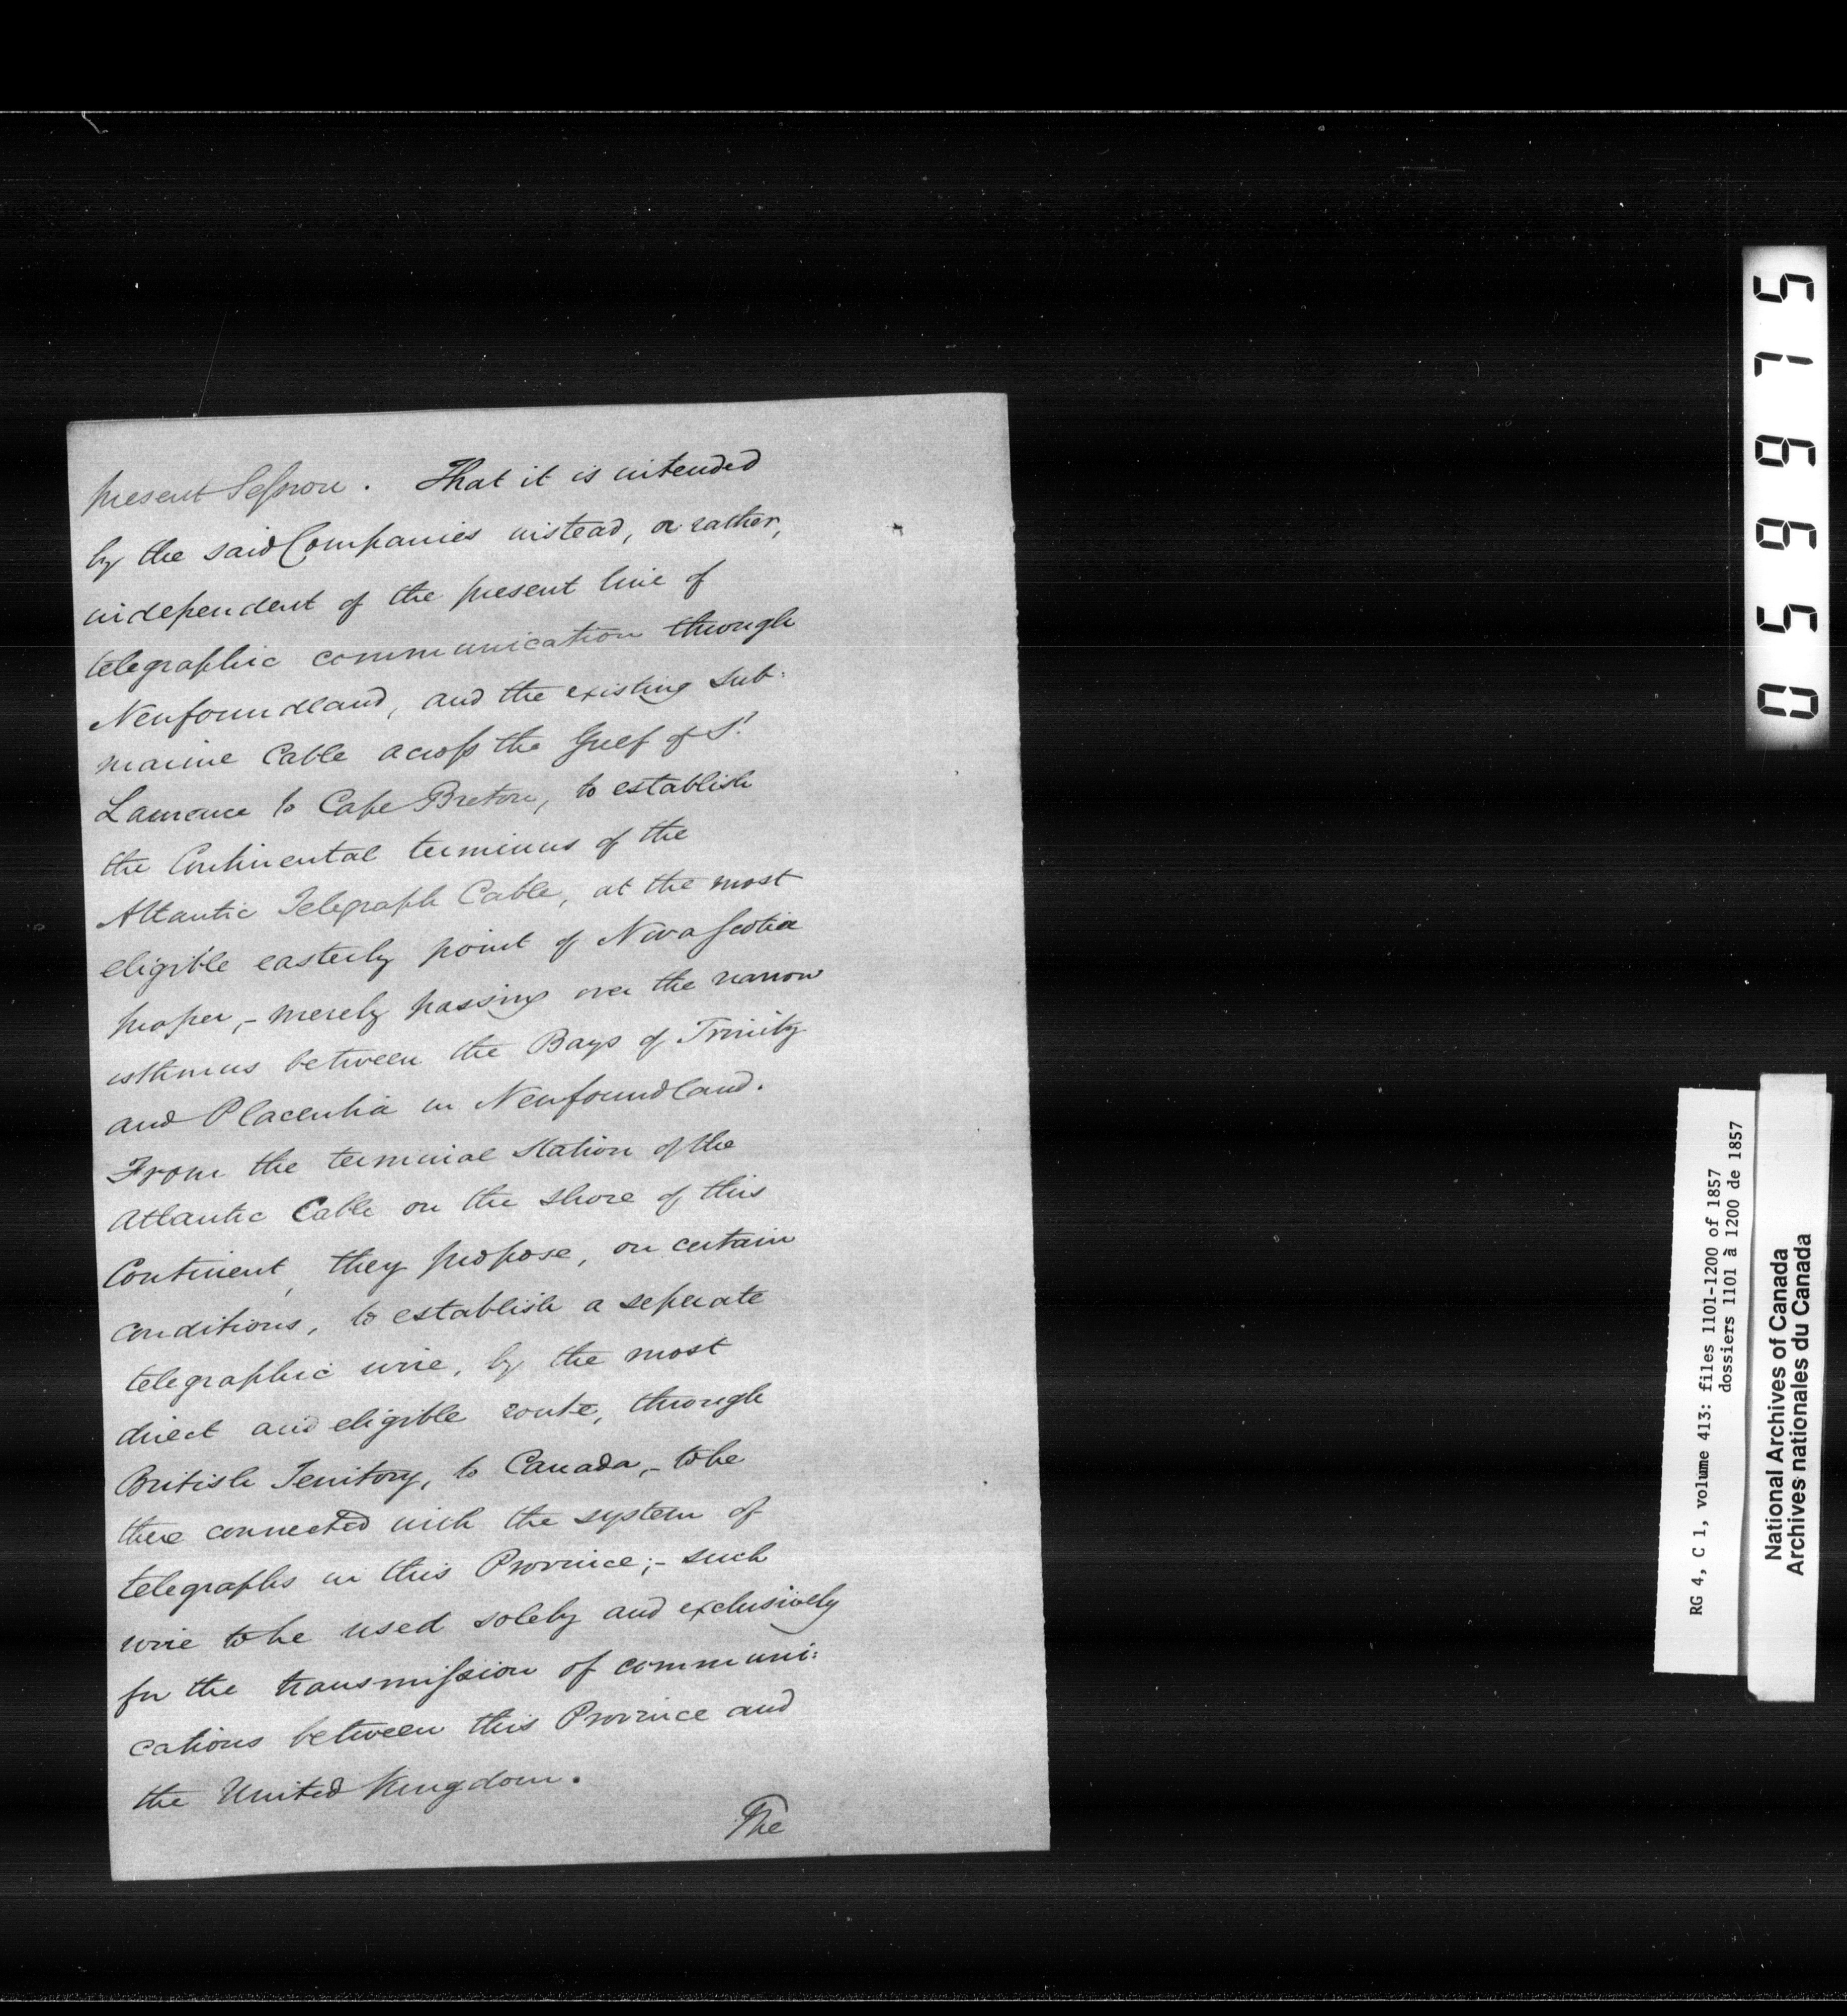 present Session. That it is intended
by the said Companies instead, or rather,
independent of the present line of
telegraphic communication through
Newfoundland, and the existing sub:
marine Cable across the Gulf of St.
Lawrence to Cape Breton, to establish
the Continental terminus of the
Atlantic Telegraph Cable, at the most
eligible easterly point of Nova Scotia
proper,- merely passing over the narrow
isthmus between the Bays of Trinity
and Placentia in Newfoundland.
From the terminal station of the
Atlantic Cable on the shore of this
Continent, they propose, on certain
conditions, to establish a seperate
telegraphic wire, by the most
direct and eligible route, through
British Territory, to Canada,- to be
there connected with the system of
telegraphs in this Province;- such
wire to be used solely and exclusively
for the transmission of communi:
cations between this Province and
the United Kingdom.
The
51665 0
RG 4, C 1, volume 413: files 1101-1200 of 1857
dossiers 1101 à 1200 de 1857
National Archives of Canada
Archives nationales du Canada